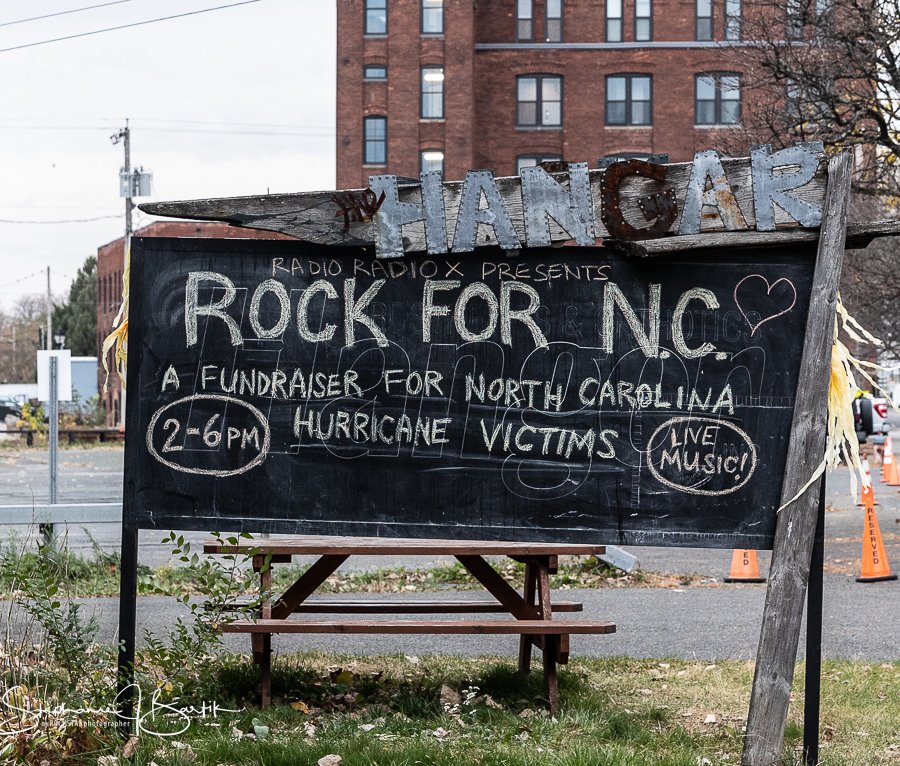 THE HANGAR
RADIO RADIO X PRESENTS
ROCK FOR N.C.
A FUNDRAISER FOR NORTH CAROLINA
2-6PM HURRICANE VICTIMS LIVE MUSIC!
RESERVED
Stephanie J Bartik